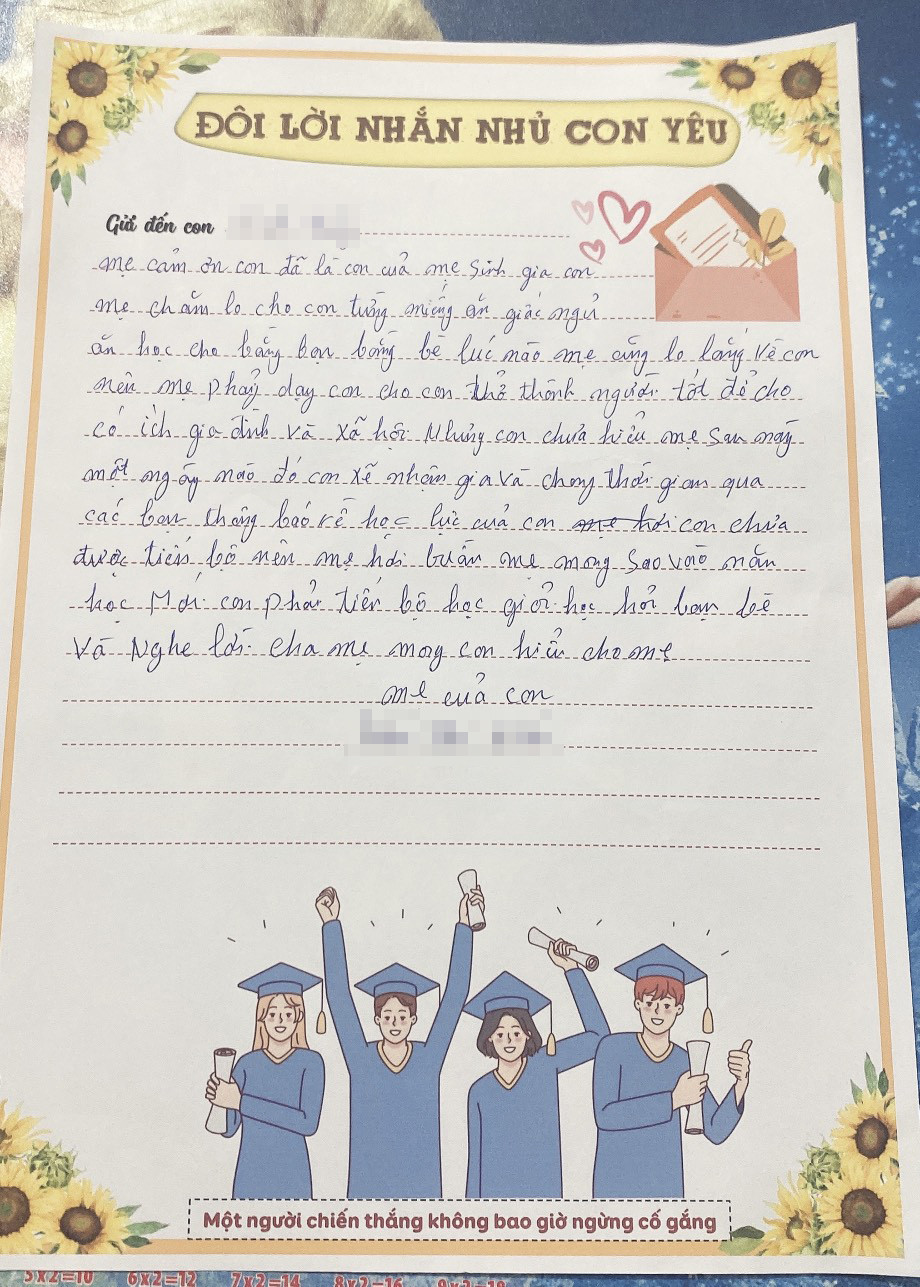 ĐÔI LỜI NHẮN NHỦ CON YÊU
Gửi đến con
mẹ cảm ơn con đã là con của mẹ sinh gia con
mẹ chăm lo cho con từng miếng ăn giấc ngủ
ăn học cho bằng bạn bằng bè lúc nào mẹ cũng lo lắng về con
nên mẹ phảy dạy con cho con thở thành người tốt để cho
có ích gia đình và xã hội Nhưng con chưa hiểu mẹ sau này
một ngày nào đó con xẽ nhận gia và chong thời gian qua
các bạn thông báo về học lực của con mẹ hơi con chưa
được tiến bộ nên mẹ hơi buần mẹ mong sao vào năn
học Mới con phải tiến bộ học giỏi học hỏi bạn bè
Và Nghe lời cha mẹ mong con hiểu cho mẹ
mẹ của con
Một người chiến thắng không bao giờ ngừng cố gắng
5x2=10 6x2=12 7x2=14 8x2=16 9x2=18